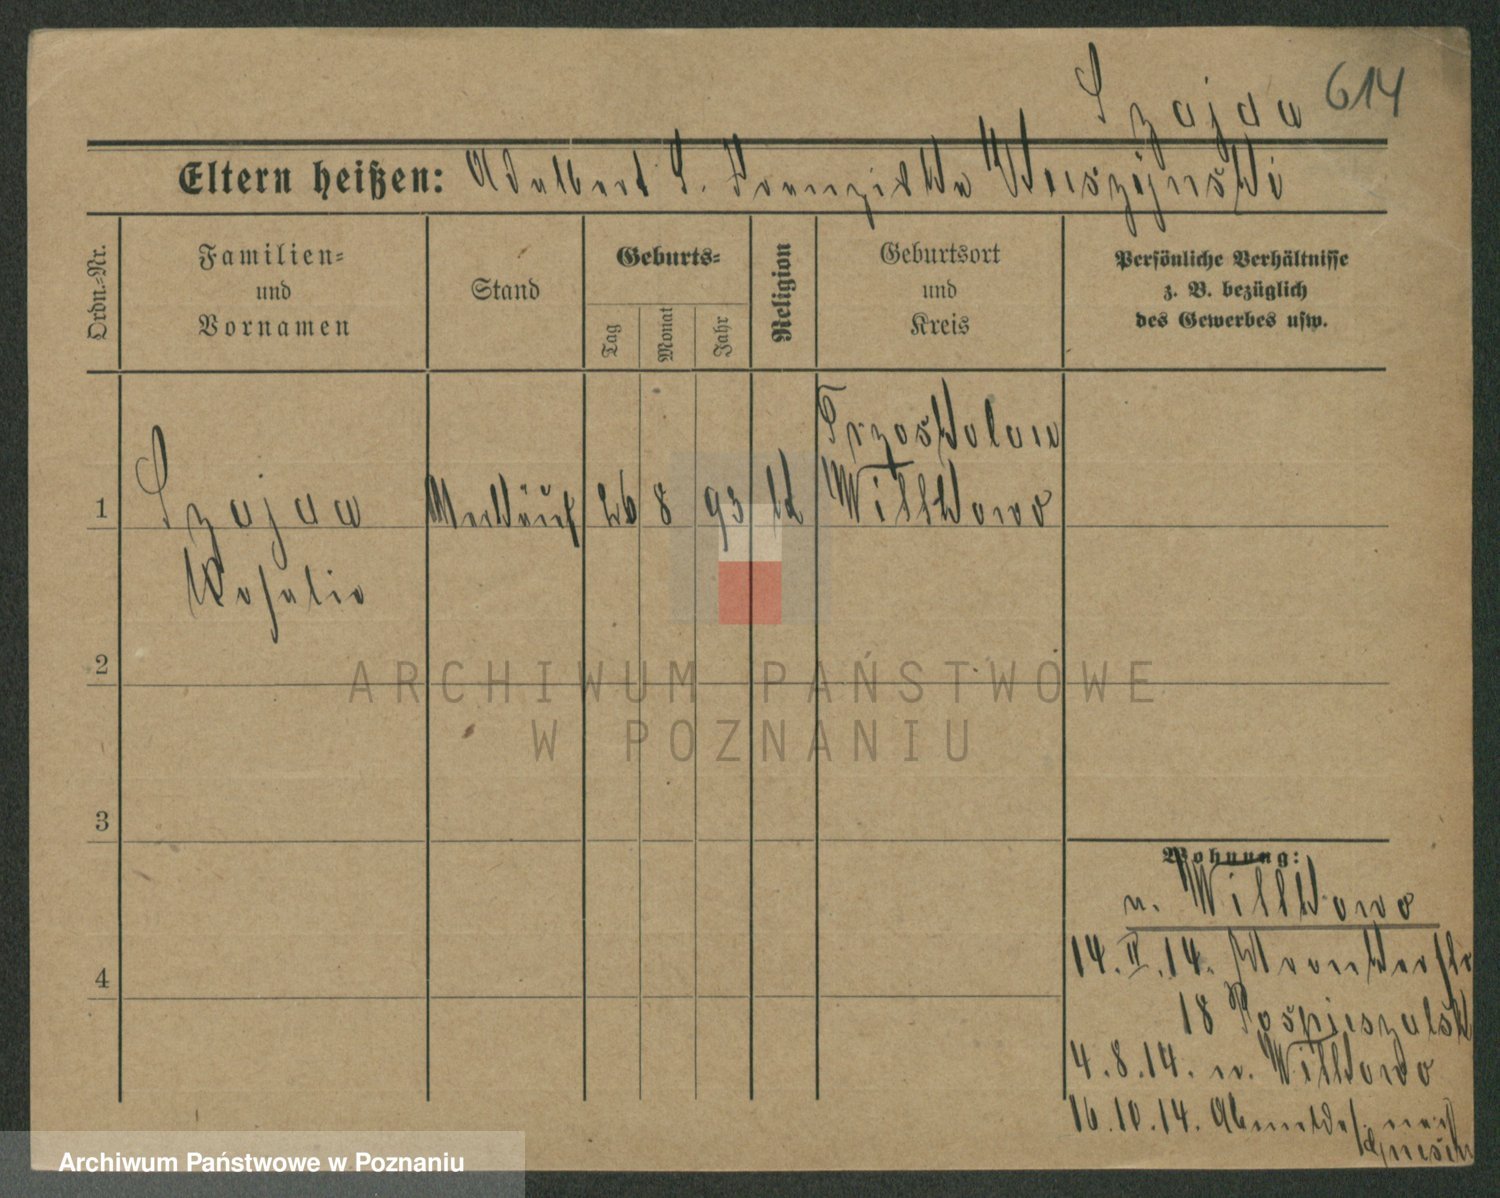 614
Szajda
Eltern heißen: Adalbert S. Franziska Wuszynski
Ordn.-Nr.
Familien-
und
Vornamen
Stand
Geburts-
Tag
Monat
Jahr
Religion
Geburtsort
und
Kreis
Persönliche Verhältnisse
z. B. bezüglich
des Gewerbes usw.
1
Szajda
Rosalie
26 8 93 k
Witkowo
2
3
4
Wohnung:
n. Witkowo
14. II. 14.
18 Pospieszalsk
4.8.14. n. Witkowo
16.10.14.
ARCHIWUM PAŃSTWOWE
W POZNANIU
Archiwum Państwowe w Poznaniu